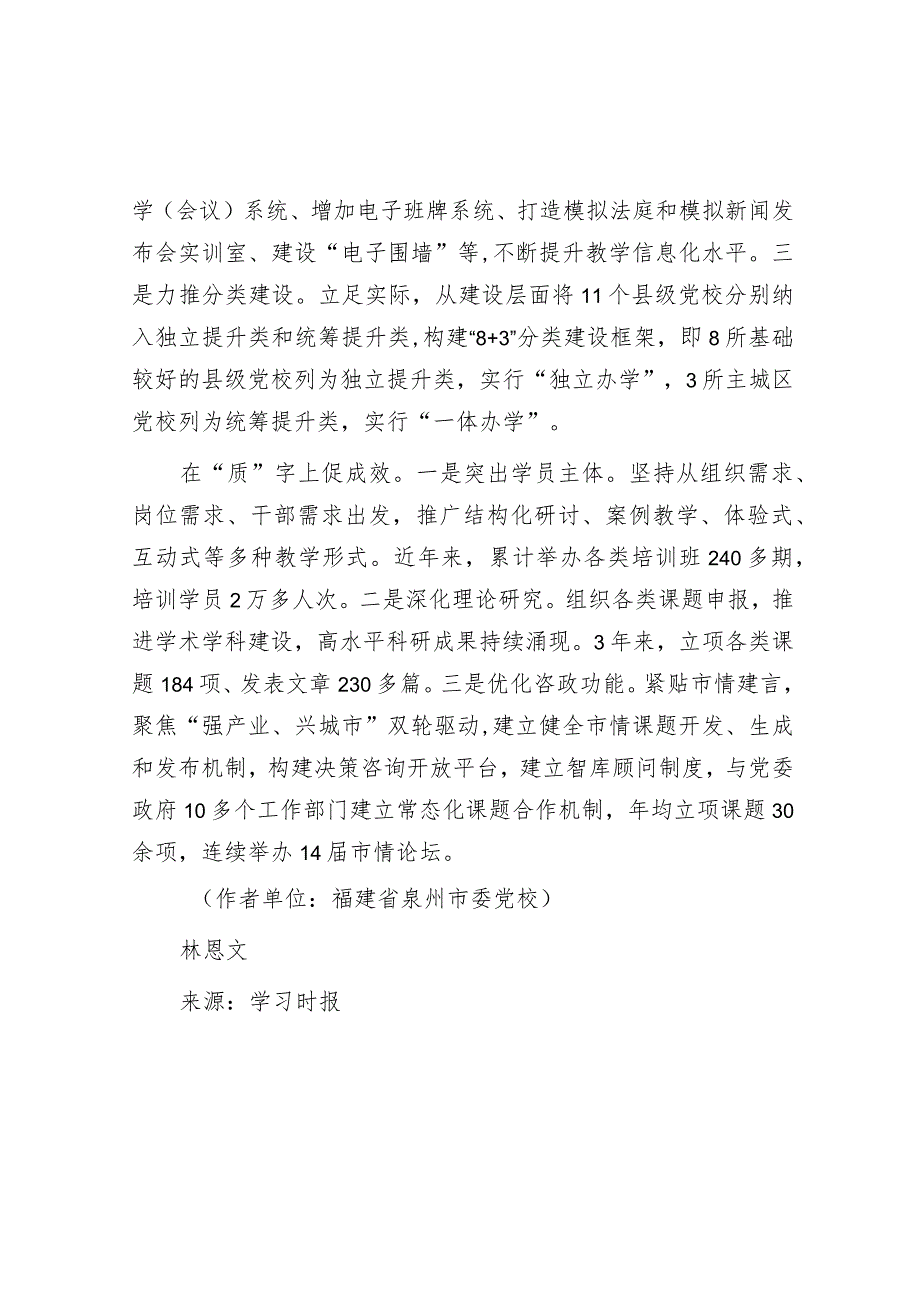 学（会议）系统、增加电子班牌系统、打造模拟法庭和模拟新闻发
布会实训室、建设“电子围墙”等,不断提升教学信息化水平。三
是力推分类建设。立足实际，从建设层面将 11 个县级党校分别纳
入独立提升类和统筹提升类,构建“8+3”分类建设框架，即 8 所基础
较好的县级党校列为独立提升类，实行“独立办学”，3 所主城区
党校列为统筹提升类，实行“一体办学”。
在“质”字上促成效。一是突出学员主体。坚持从组织需求、
岗位需求、干部需求出发，推广结构化研讨、案例教学、体验式、
互动式等多种教学形式。近年来，累计举办各类培训班 240 多期，
培训学员 2 万多人次。二是深化理论研究。组织各类课题申报，推
进学术学科建设，高水平科研成果持续涌现。3 年来，立项各类课
题 184 项、发表文章 230 多篇。三是优化咨政功能。紧贴市情建言，
聚焦“强产业、兴城市”双轮驱动,建立健全市情课题开发、生成
和发布机制，构建决策咨询开放平台，建立智库顾问制度，与党委
政府 10 多个工作部门建立常态化课题合作机制，年均立项课题 30
余项，连续举办 14 届市情论坛。
（作者单位：福建省泉州市委党校）
林恩文
来源：学习时报